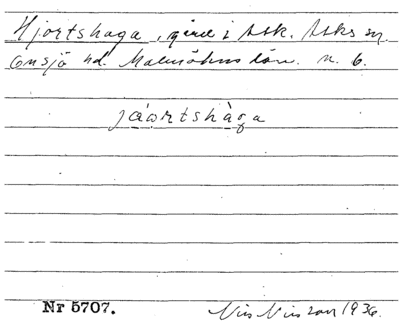 Hjortshaga, gård i Ask. Asks sn.
Onsjö hd. Malmöhus län. n. 6.
jǻortshàga
Nr 5707.
Nils Nilsson 1936.